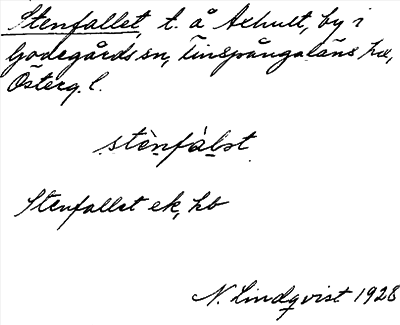 Stenfallet, t. å Axhult, by i
Godegårds sn, Finspånga läns hd,
Österg. l.
stènfálət
Stenfallet ek, hb
N. Lindqvist 1928